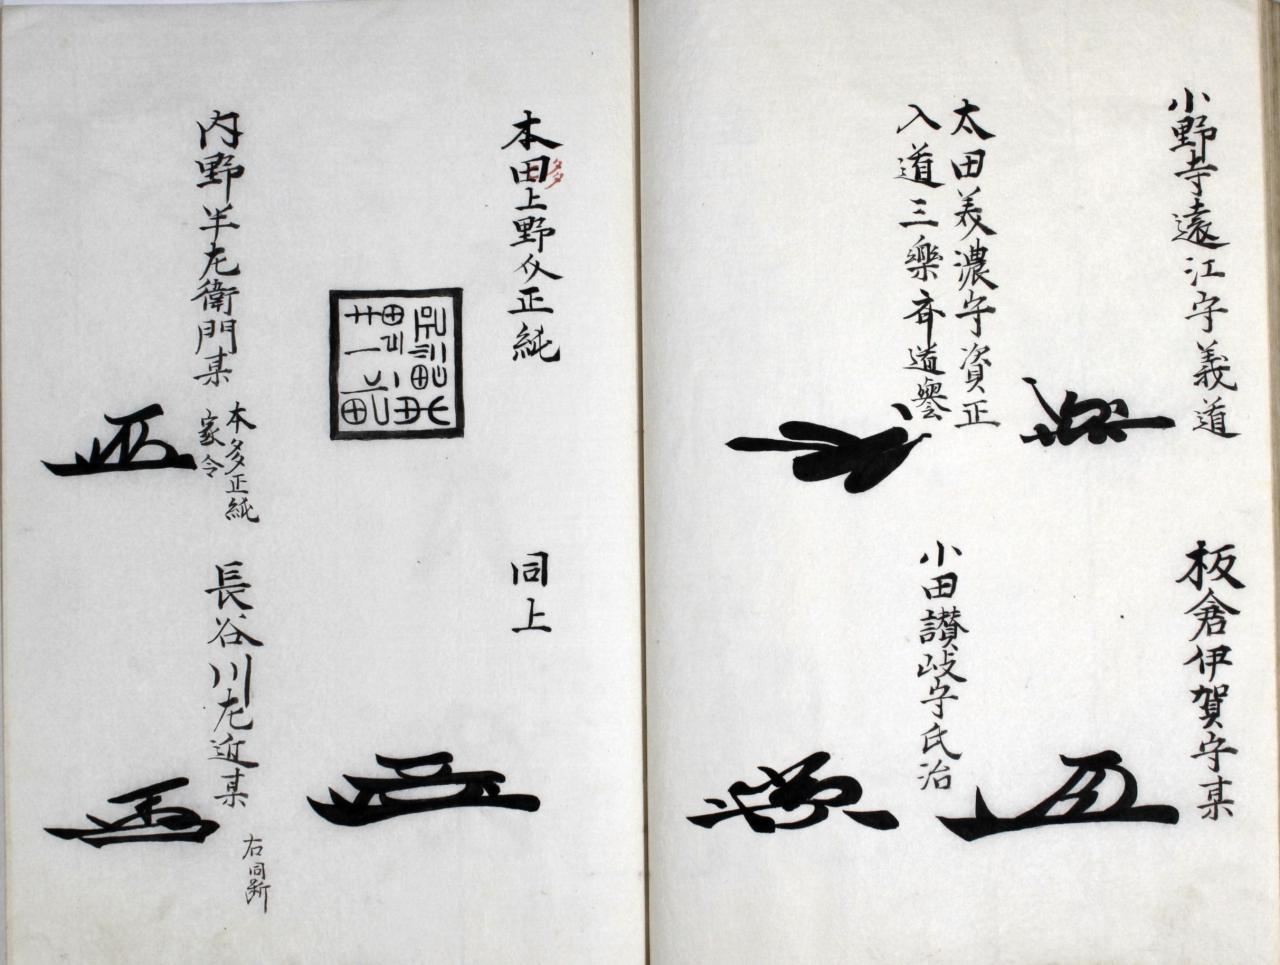 小野寺遠江守義道
板倉伊賀守某
太田美濃守資正
入道三樂斉道譽
小田讃岐守氏治
本田上野介正純
多
同上
内野半左衛門某
本多正純
家令
長谷川左近某
右同断